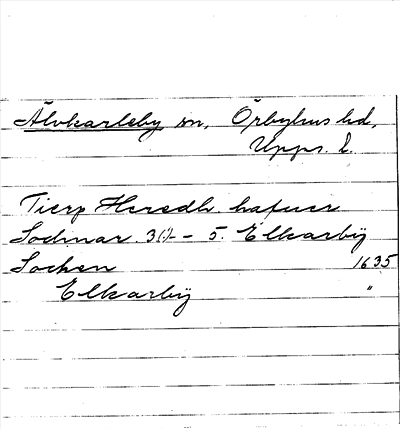 Älvkarleby sn, Örbyhus hd,
Upps. l.
Tierp Heredh. hafuer
Sochnar. 3(?)– – 5. Elkarbÿ
Sochen 1635
Elkarbÿ "